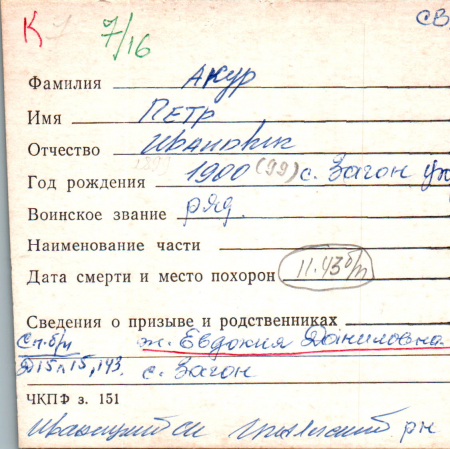 К 7/16 СВ
Фамилия Акур
Имя Петр
Отчество Иванович
Год рождения 1900 (99) с. Загон
Воинское звание ряд.
Наименование части
Дата смерти и место похорон 11.43 б/п
Сведения о призыве и родственниках
Сп. б/п ж. Евдокия Даниловна
Д15л15,143 с. Загон
ЧКПФ з. 151
рн